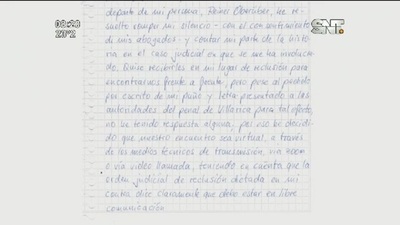 08:20
27°C
SNT.
de parte de mi persona, Reiner Oberüber, he re-
suelto romper mi silencio - con el consentimiento
de mis abogados - y contar mi parte de la histo
ria en el caso judicial en que se me ha involucra
do. Quise recibirles en mi lugar de reclusión para
encontrarnos frente a frente, pero pese al pedido
por escrito de mi puño y letra presentado a las
autoridades del penal de Villarica para tal efecto,
no he tenido respuesta alguna, por eso he decidi
do que nuestro encuentro sea virtual, a través
de los medios técnicos de transmisión vía zoom
o vía video llamada, teniendo en cuenta que la
orden judicial de reclusión dictada en mi
contra dice claramente que debo estar en libre
comunicación